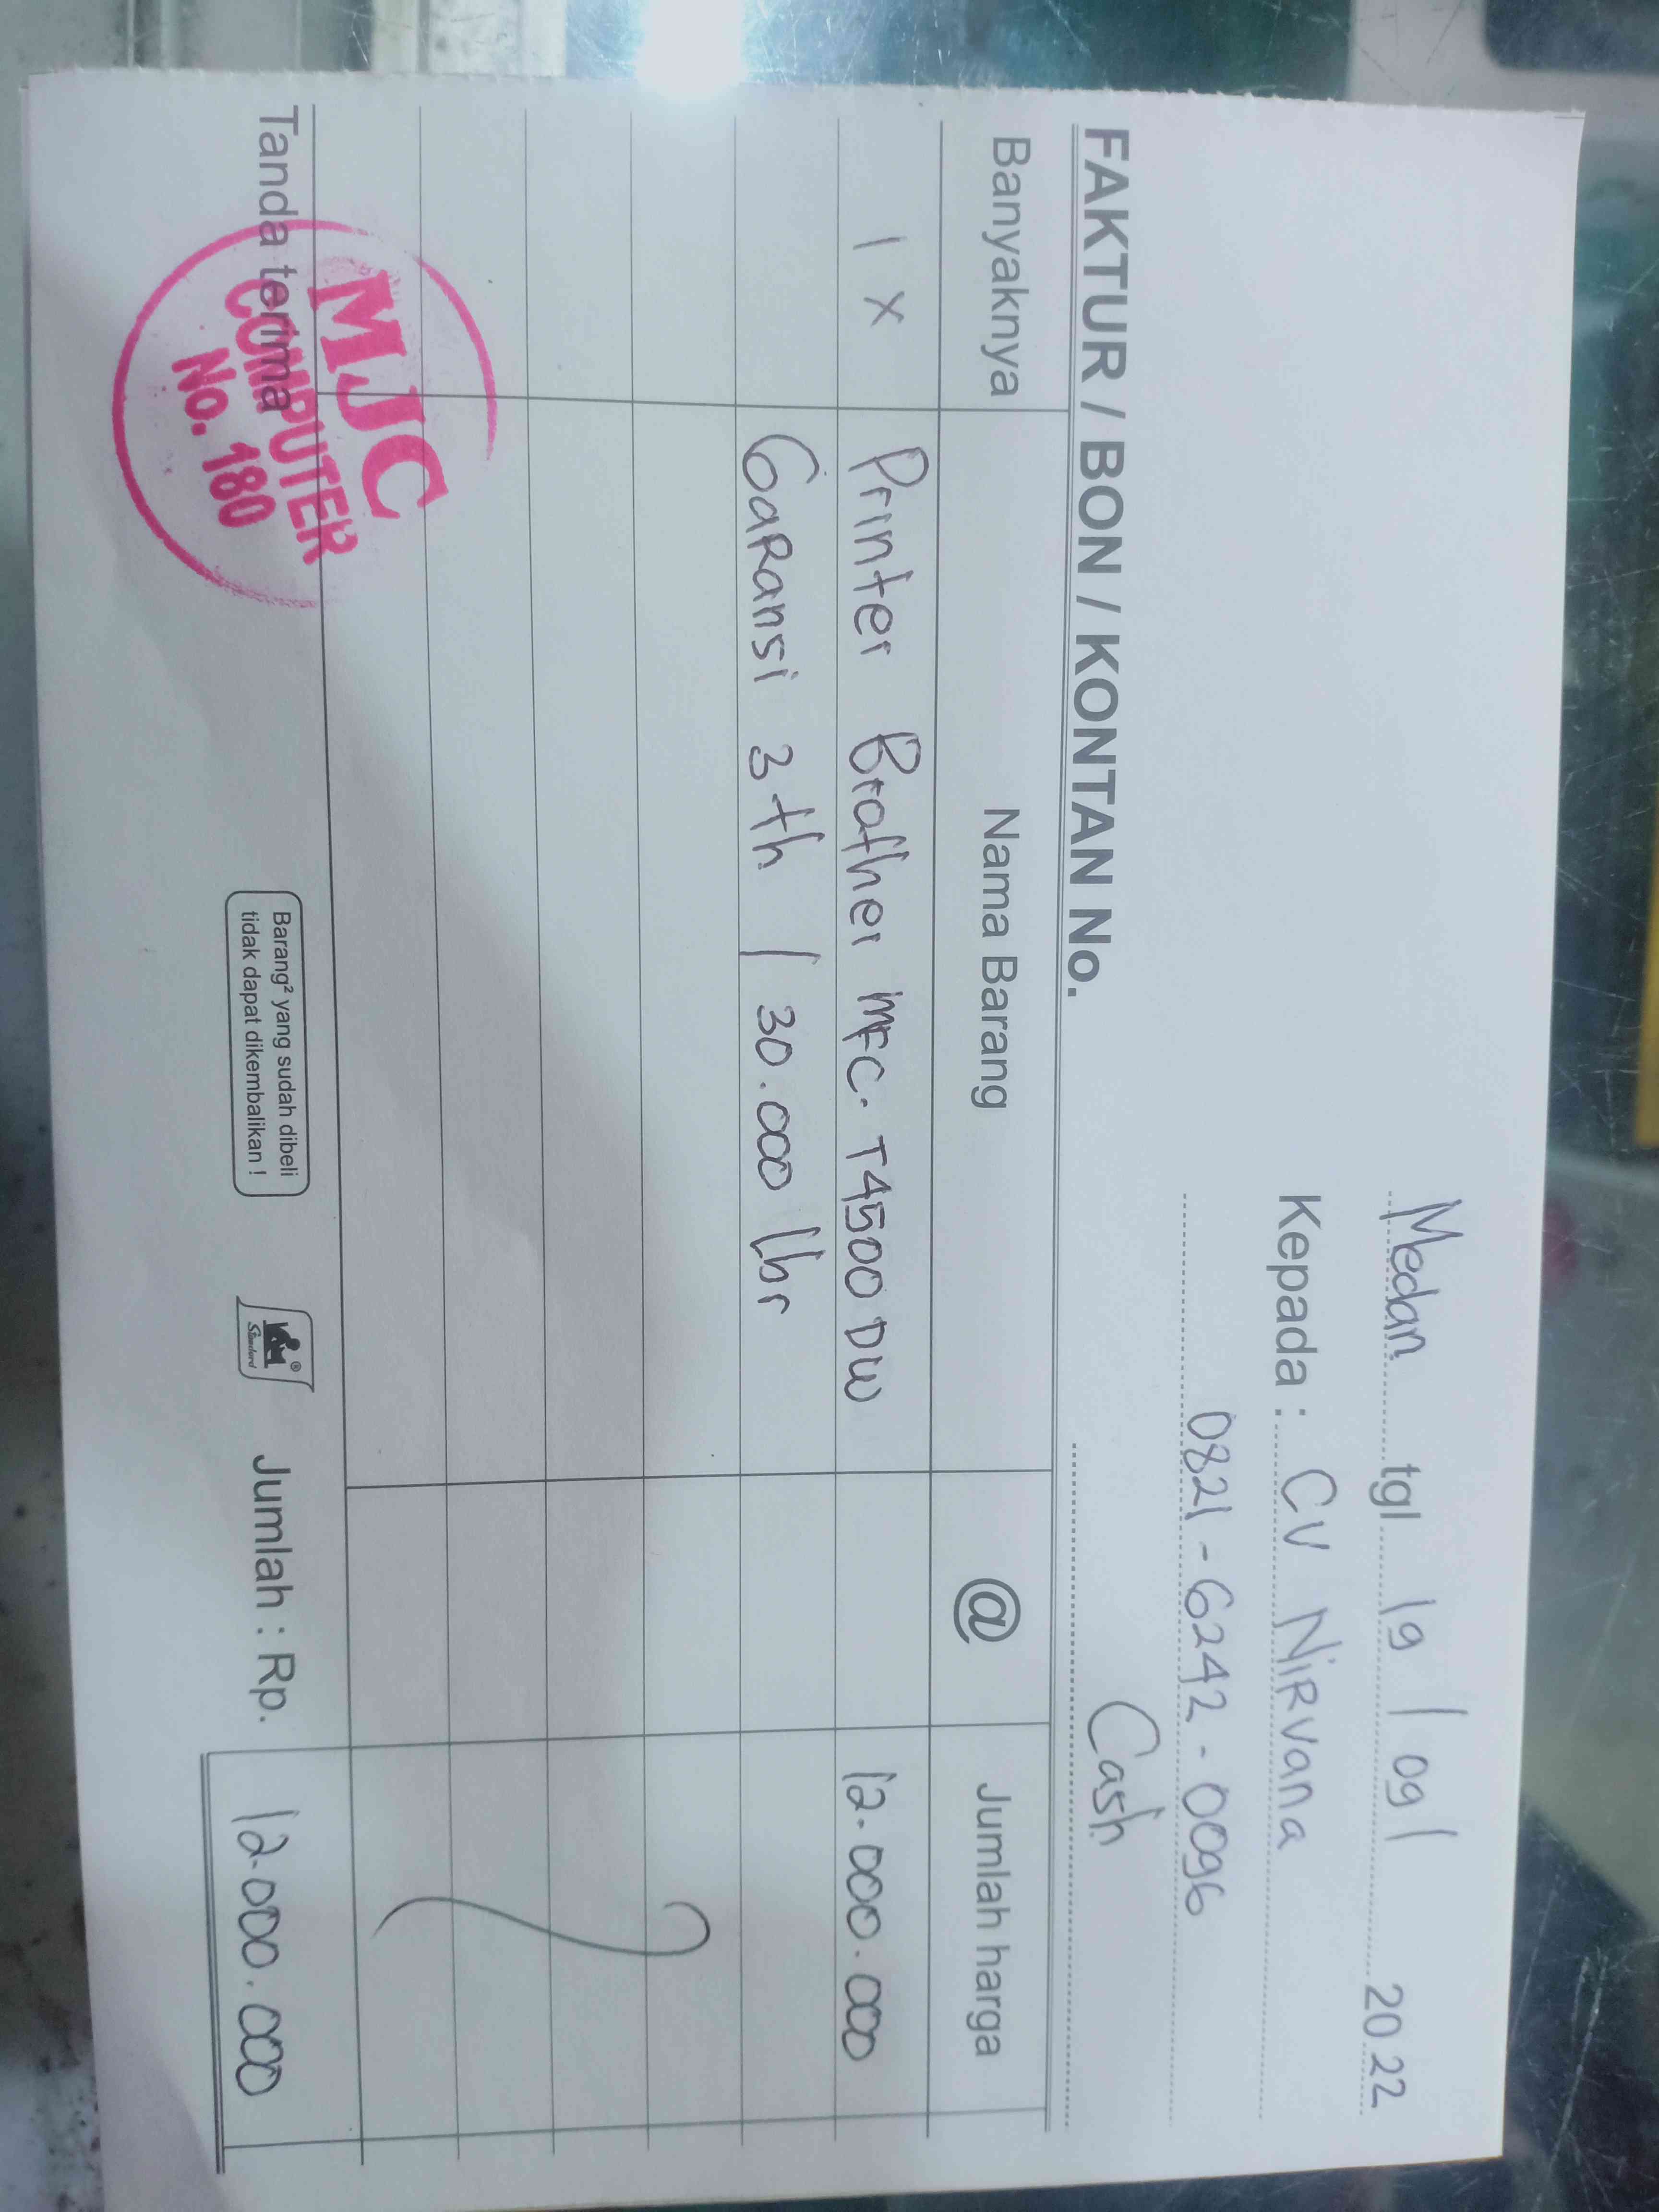 Medan tgl 19 / 09 / 2022
Kepada : CV Nirvana
0821-6242-0096
FAKTUR / BON / KONTAN No. Cash
Banyaknya Nama Barang @ Jumlah harga
1 x Printer Brother MFC. T4500 DW 12.000.000
Garansi 3 th / 30.000 lbr
Tanda terima
MJC
COMPUTER
No. 180
Barang² yang sudah dibeli
tidak dapat dikembalikan !
Standard
Jumlah : Rp. 12.000.000